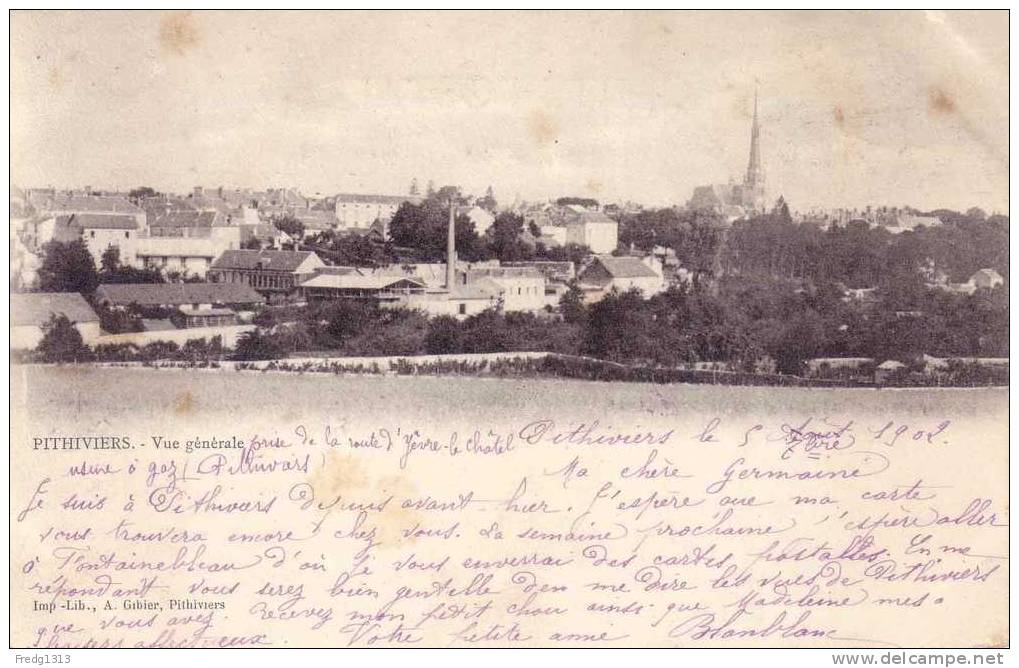 PITHIVIERS. - Vue générale prise de la route d'Yèvre-le-châtel Pithiviers le 5 7bre 1902.
usine à gaz (Pithiviers)
Ma chère Germaine
Je suis à Pithiviers depuis avant-hier. J'espère que ma carte
vous trouvera encore chez vous. La semaine prochaine j'espère aller
à Fontainebleau d'où je vous enverrai des cartes postales. En me
répondant vous serez bien gentille de me dire les vues de Pithiviers
Imp -Lib., A. Gibier, Pithiviers
que vous avez. Recevez mon petit chou ainsi que Madeleine mes
baisers affectueux. Votre petite amie
Fredg1313
www.delcampe.net